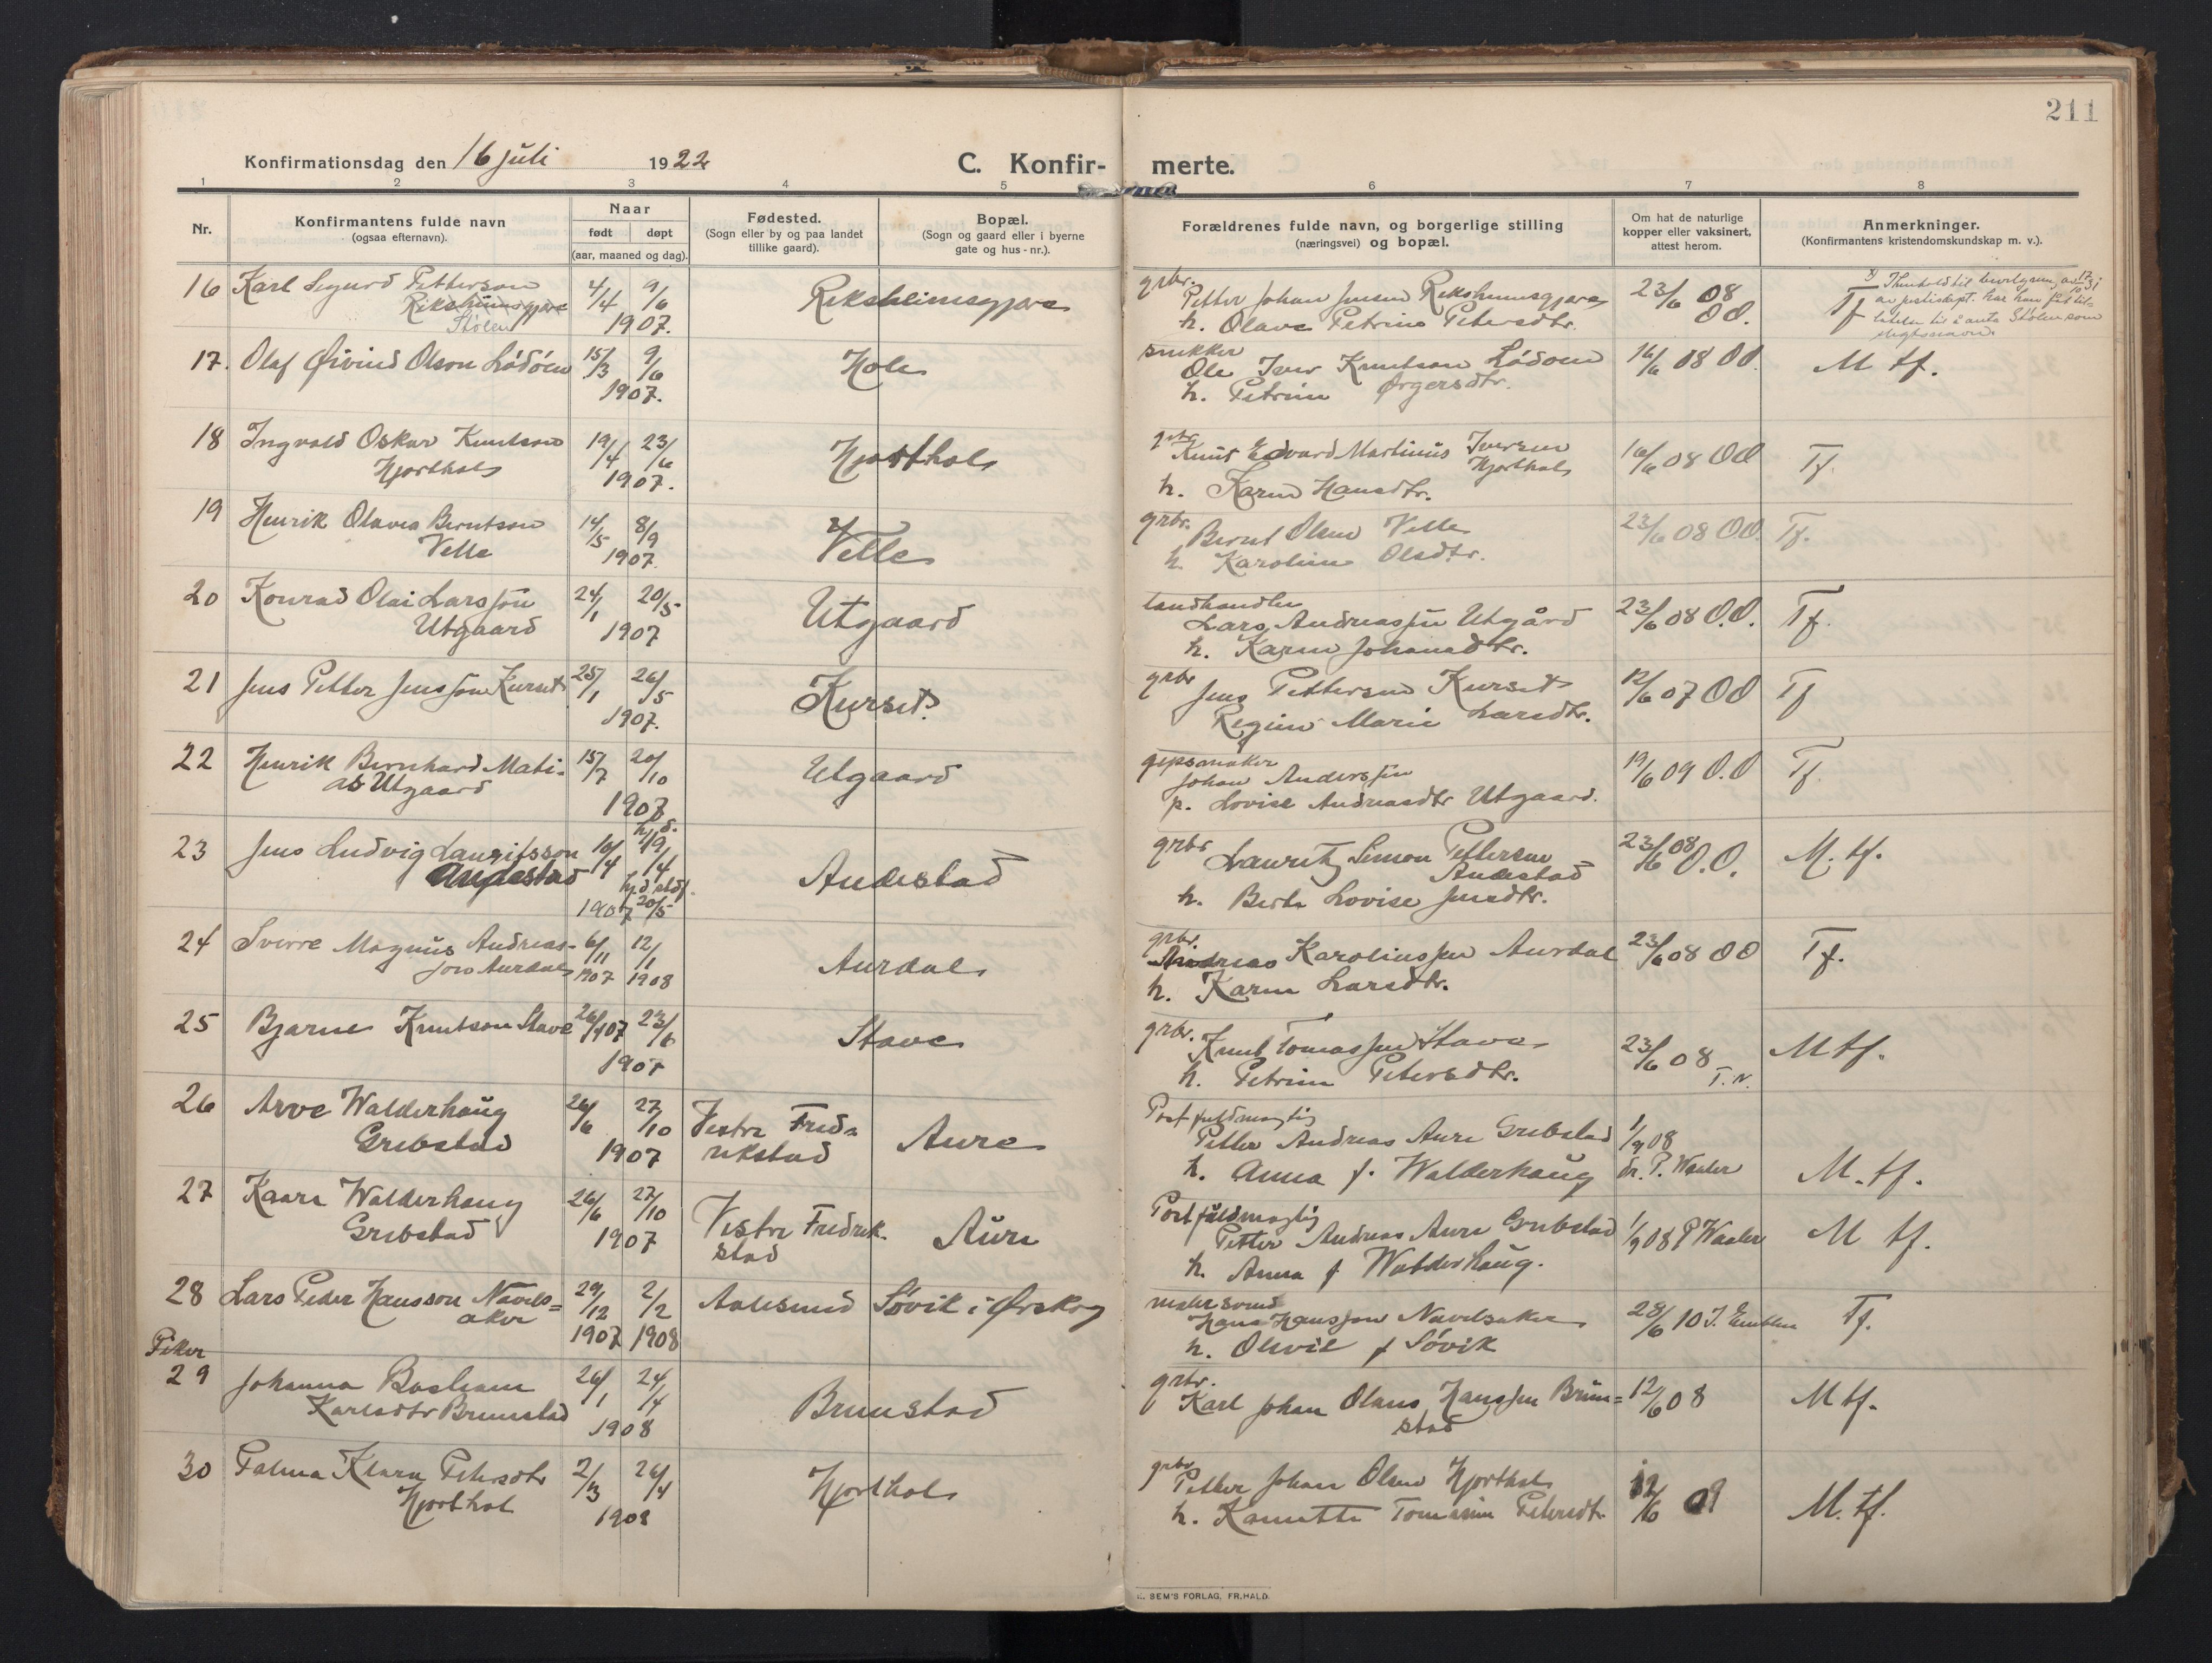 211
Konfirmationsdag den 16 juli 1922
C. Konfir- merte.
1 2 3 4 5 6 7 8
Nr.
Konfirmantens fulde navn
(ogsaa efternavn).
Naar
født døpt
(aar, maaned og dag).
Fødested.
(Sogn eller by og paa landet
tillike gaard).
Bopæl.
(Sogn og gaard eller i byerne
gate og hus-nr.).
Forældrenes fulde navn, og borgerlige stilling
(næringsvei) og bopæl.
Om hat de naturlige
kopper eller vaksinert,
attest herom.
Anmerkninger.
(Konfirmantens kristendomskundskap m. v.).
16 Karl Sigurd Petterson 4/4 9/6 Riksheimsgjære grbr. 23/6 08 Tf
Rikshimsgjære 1907. Petter Johan Jensen Rikshumsgjære OO.
Stølen h. Olave Petrine Petersdtr.
har han fåt til-
latelse til å anta Stølen som
slegtsnavn.
17. Olaf Øivind Olson Lódóen 15/3 9/6 Hole snikker 16/6 08 OO. M tf.
1907. Ole Iver Knutson Lódoen
h. Petrine Ørgersdtr.
18 Ingvald Oskar Knutson 19/4 23/6 Hjorthol grbr. 16/6 08 OO Tf.
Hjorthol 1907. Knut Edvard Martinus Iversen
Hjorthol
h. Karen Hansdtr.
19 Henrik Olava Berntson 14/5 8/9 Velle grbr. 23/6 08 OO. Tf.
Velle 1907. Bernt Olsen Velle
h. Karoline Olsdtr.
20 Konrad Olai Larsson 24/1 20/5 Utgaard landhandler 23/6 08 O.O. Tf.
Utgaard 1907 Lars Andreassen Utgård
h. Karen Johansdtr.
21 Jens Petter Jensson Kurset 25/1 26/5 Kurset grbr 12/6 07 OO Tf
1907. Jens Pettersen Kurset
Regine Marie Larsdtr.
22 Henrik Bernhard Mati- 15/7 20/10 Utgaard gipsmaker 19/6 09 O.O Tf.
as Utgaard 1907 Johan Anderssen
p. Lovise Andreasdtr Utgaard.
23 Jens Ludvig Lauritsson 16/4 hj.d. 19/4 Andestad grbr 23/6 08 O.O. M. tf.
Andestad 1907 20/5 Lauritz Simon Pettersen
Andestad
h. Berte Lovise Jensdtr.
24 Sverre Magnus Andreas- 6/11 12/1 Aurdal grbr. 23/6 08 OO Tf.
son Aurdal 1907 1908 Andreas Karolinssen Aurdal
h. Karen Larsdtr.
25 Bjarne Knutson Stave 23/6 Stave grbr. 23/6 08 M tf.
1907 Knut Tomassen Stave T.N.
h. Petrine Petersdtr.
26 Arve Walderhaug 26/6 27/10 Vestre Fred- Aure Postfuldmægtig 1/9 08
Grebstad 1907 rikstad Petter Andreas Aure Grebstad dr. P. Waaler
h. Anna f. Walderhaug M. tf.
27 Kaare Walderhaug 26/6 27/10 Vestre Fredrik- Aure Postfuldmægtig 1/9 08 P Waaler M tf.
Grebstad 1907 stad Petter Andreas Aure Grebstad
h. Anna f Walderhaug.
28 Lars Peder Hansson Navels- 29/12 2/2 Aalesund Søvik i Ørskog malersvend 28/6 10 J. Emblem Tf.
aker 1907 1908 Hans Hanssen Navelsaker
h. Olivie f Sóvik
Piker
29 Johanna Bastiane 26/1 24/4 Brunstad grbr. 12/6 08 M tf.
Karlsdtr Brunstad 1908 Karl Johan Olaus Hanssen Brun-
stad
30 Palma Klara Petersdtr 2/3 26/4 Hjorthol grbr 12/6 09 M. tf.
Hjorthol 1908 Petter Johan Olsen Hjorthol
h. Kanutte Tomasine Petersdtr.
SEM'S FORLAG, FR.HALD.